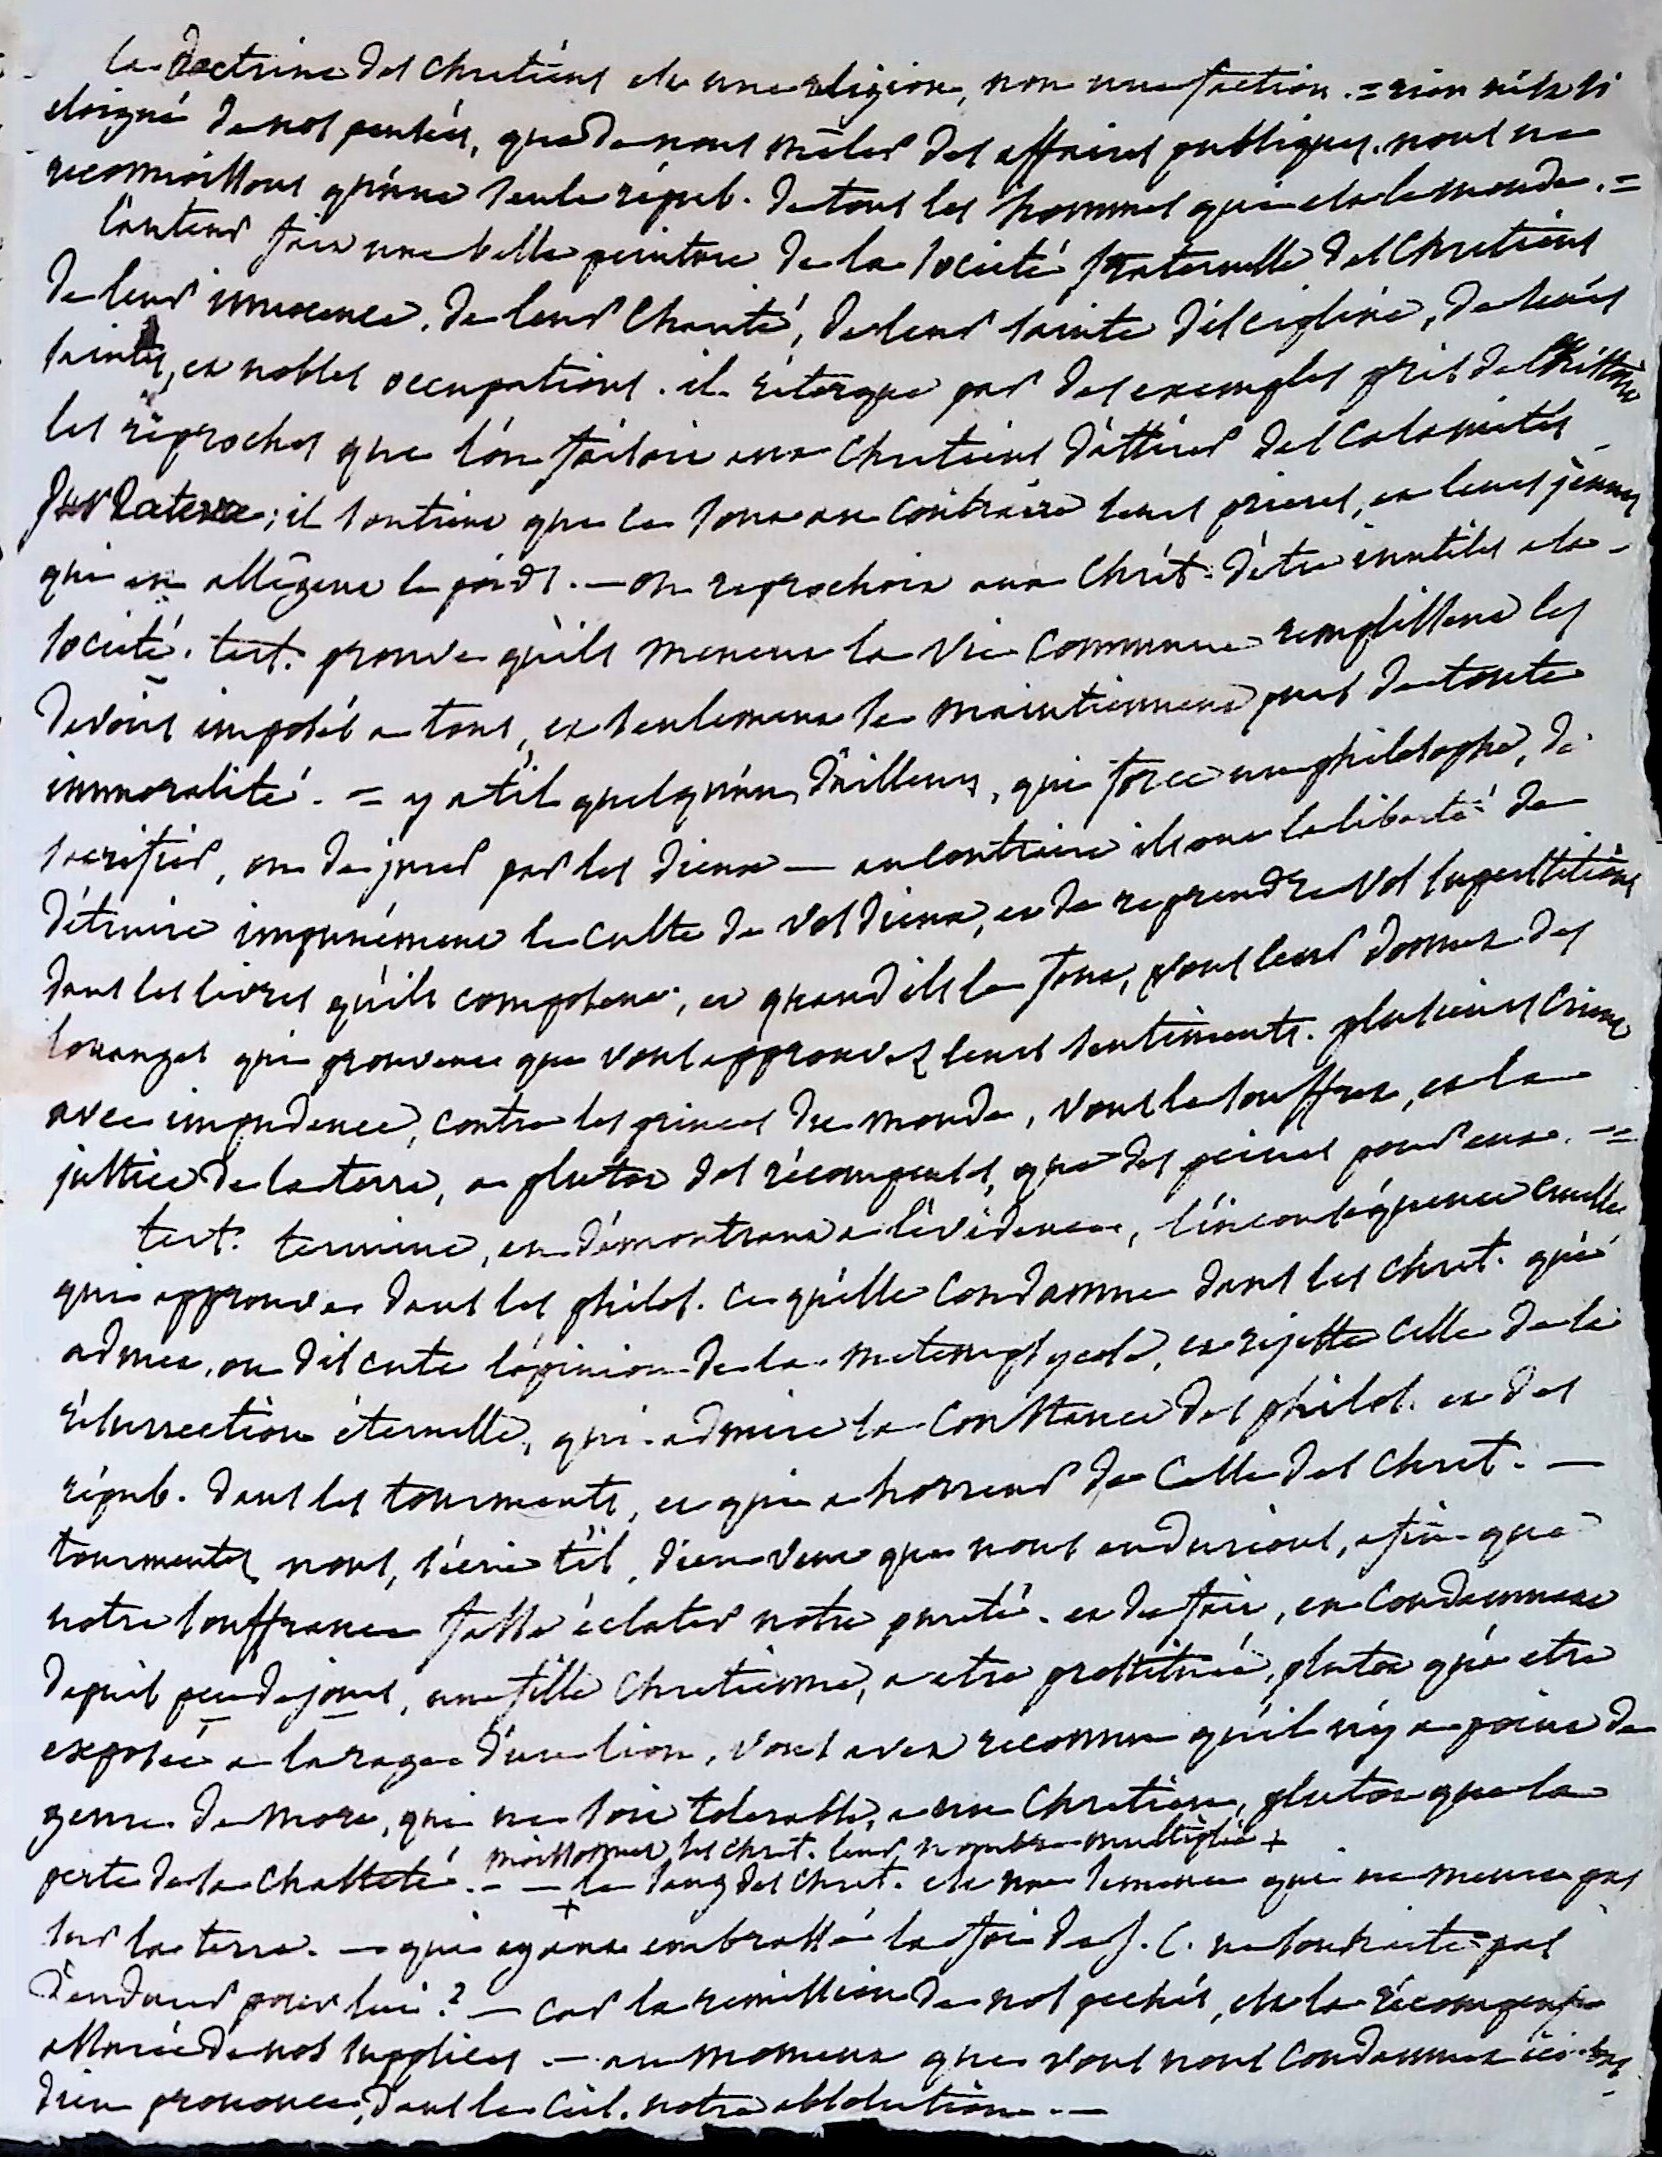 la doctrine des chretiens est une religion, non une faction. = rien n'est si
eloigné de nos pensées, que de nous mêler des affaires publiques. nous ne
reconnoissons qu'une seule répub. de tous les hommes qui est le monde. =
l'auteur fait une belle peinture de la société fraternelle des Chretiens
de leur innocence, de leur Charité, de leur sainte discipline, de leurs
saintes, et nobles occupations. il rétorque par des exemples pris de l'histoire
les réproches que l'on faisoit aux Chretiens d'attirer des Calamités
sur la terre; il soutient que ce sont au contraire leurs prieres, et leurs jeunes
qui en allègent le poids. — on reprochoit aux Chrét. d'être inutiles a la
société. tert. prouve qu'ils menent la vie Commune remplissent les
devoirs imposés a tous, et seulement se maintiennent purs de toute
immoralité. = y a t'il quelqu'un d'ailleurs, qui force un philosophe, de
sacrifier, ou de jurer par les dieux — au contraire ils ont la liberté de
détruire impunément le culte de vos dieux, et de reprendre vos superstitions
dans les livres qu'ils composent, et quand ils le font, vous leur donnez des
louanges qui prouvent que vous approuvez leurs sentiments. plusieurs crient
avec impudence, contre les princes du monde, vous le souffrez, et la
justice de la terre, a plutot des récompenses, que des peines pour eux. =
tert. termine, en démontrant a l'évidence, l'inconséquence cruelle
qui approuve dans les philos. ce qu'elle Condamne dans les chret. qui
admet, ou discute l'opinion de la metempsycose, et rejette celle de la
résurrection éternelle, qui admire la Constance des philos. et des
répub. dans les tourments, et qui a horreur de Celle des Chret. —
tourmentez nous, s'écrie t'il, dieu veut que nous endurions, afin que
notre souffrance fasse éclater notre pureté. et de fait, en Condamnant
depuis peu de jours, une fille Chretienne, a etre prostituée, plutot qu'a etre
exposée a la rage d'un lion, vous avez reconnu qu'il n'y a point de
genre de mort, qui ne soit tolerable, a un Chretien, plutot que la
moissonnez les chret. leur nombre multiplie +
perte de la Chasteté. — + le sang des Chret. est une semence qui ne meurt pas
sur la terre. — qui ayant embrassé la foi de J. C. ne souhaite pas
d'endurer pour lui? — car la remission de nos pechés, est la récompense
assurée de nos supplices — au moment que vous nous Condamnez ici bas
dieu prononce, dans le Ciel, notre absolution. —